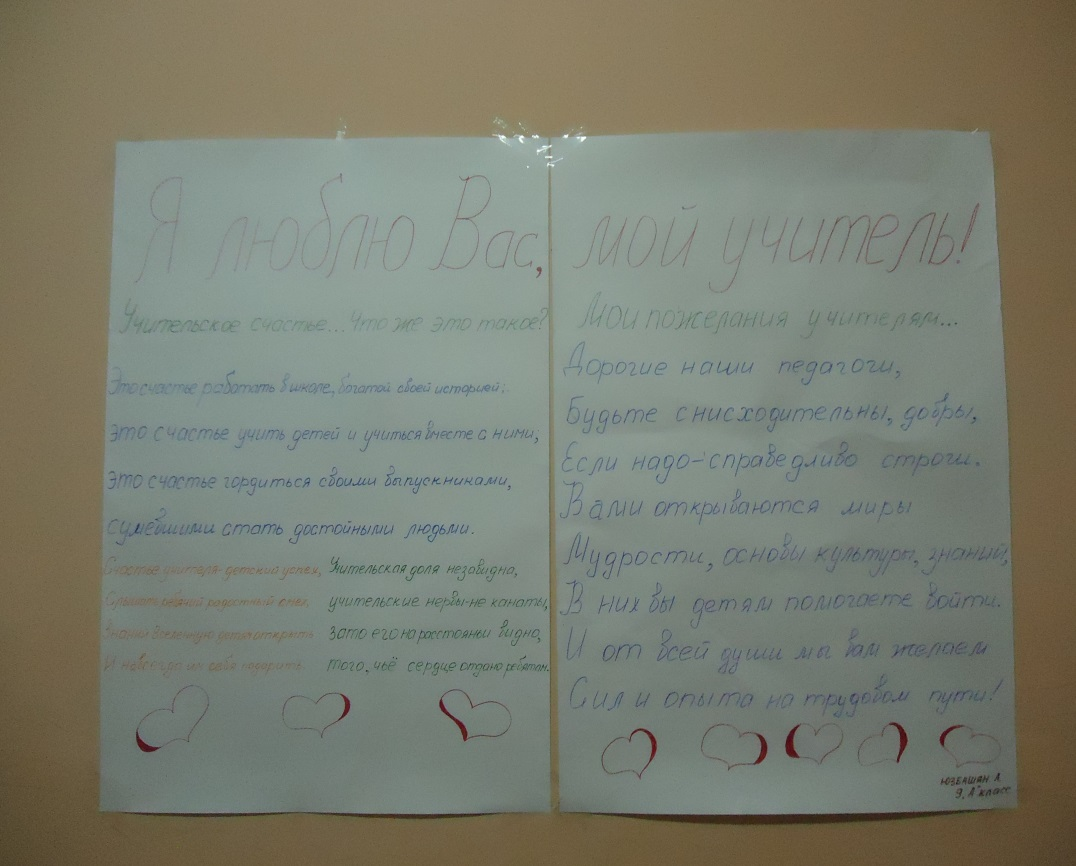 Я люблю Вас, мой учитель!
Учительское счастье... Что же это такое?
Это счастье работать в школе, богатой своей историей;
это счастье учить детей и учиться вместе с ними,
это счастье гордиться своими выпускниками,
сумевшими стать достойными людьми.
Счастье учителя - детский успех,
Слышать ребячий радостный смех,
Знаний Вселенную детям открыть
И навсегда им себя подарить.
Учительская доля незавидна,
учительские нервы-не канаты,
зато его на расстояньи видно,
того, чьё сердце отдано ребятам.
Мои пожелания учителям...
Дорогие наши педагоги,
Будьте снисходительны, добры,
Если надо-справедливо строги.
Вами открываются миры
Мудрости, основы культуры, знаний,
В них вы детям помогаете войти.
И от всей души мы вам желаем
Сил и опыта на трудовом пути!
Юзбашян А.
9 "А" класс